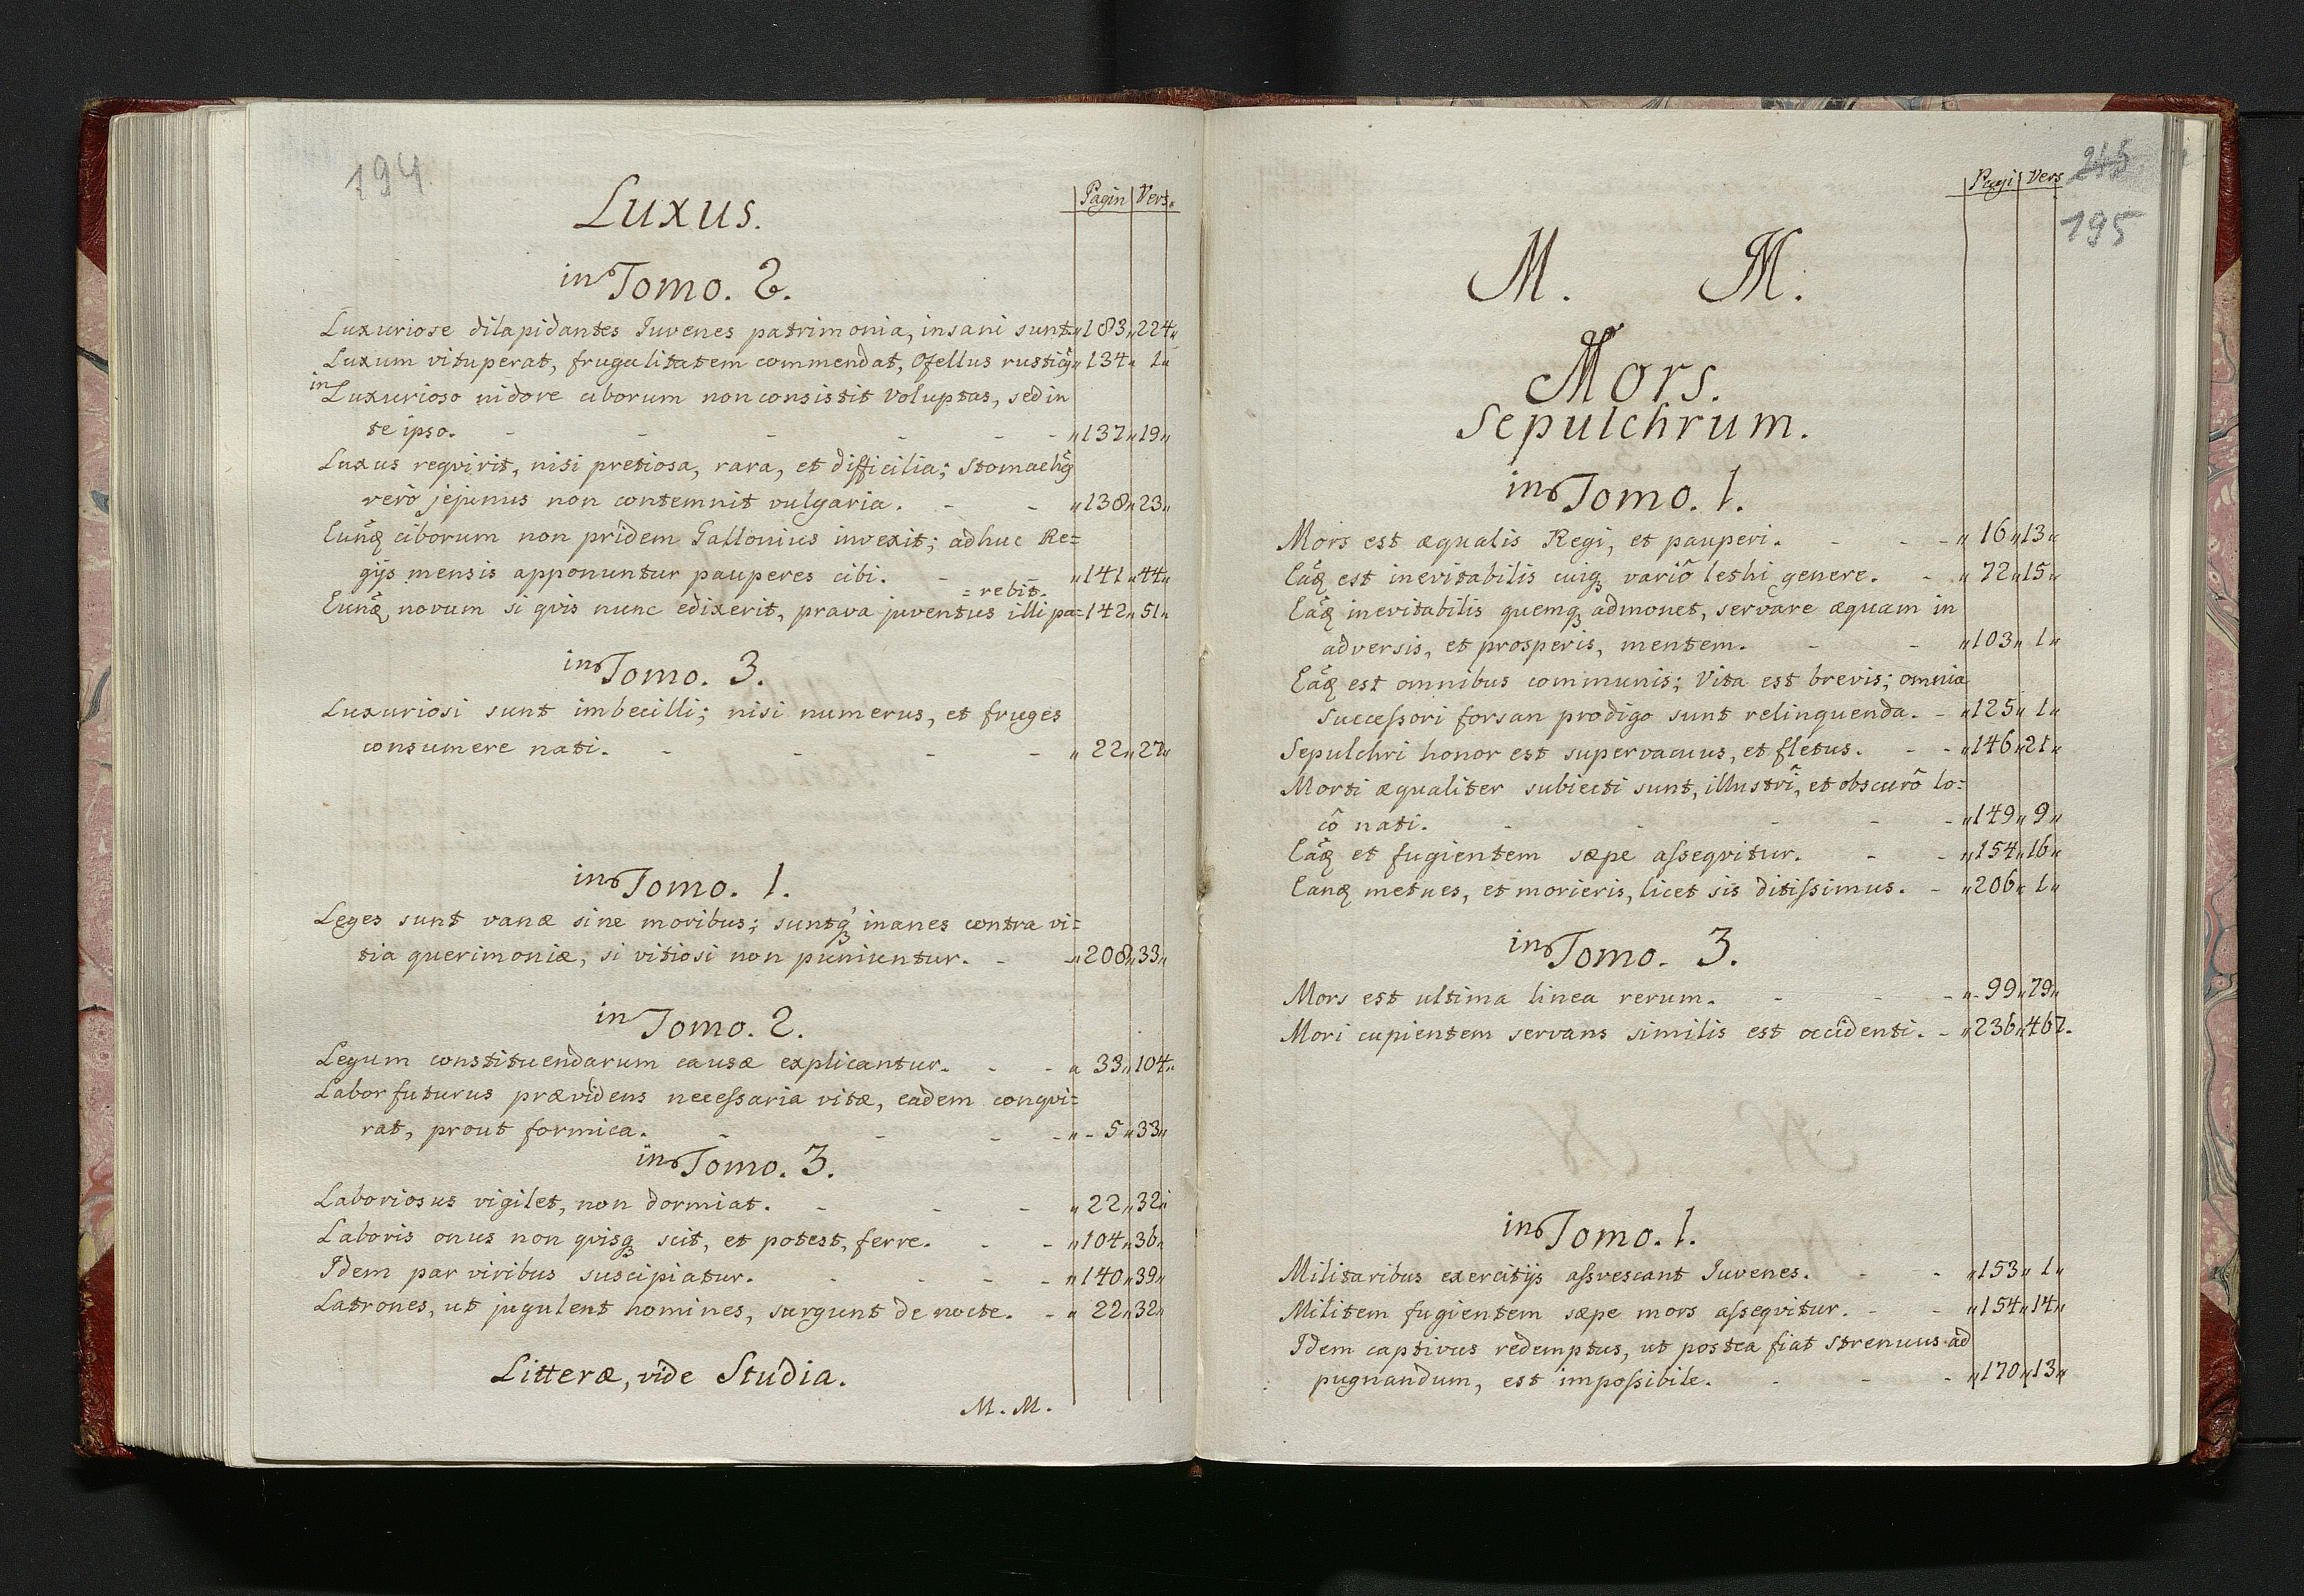 194
Luxus.
Pagin Vers.
in Tomo. 2.
Luxuriose dilapidantes Iuvenes patrimonia, insani sunt. „183„224„
Luxum vituperat, frugalitatem commendat, Ofellus rusticq „134„ 1„
in Luxurioso nidore ciborum non consistit voluptas, sed in
te ipso. - - - - - - „137„19„
Luxus reqvirit, nisi pretiosa, rara, et difficilia; stomachq
verò jejunus non contemnit vulgaria. - - „138„23„
Eunq ciborum non pridem Gallonius invexit; adhuc Re=
gijs mensis apponuntur pauperes cibi. - „141„44„
= rebit.
Eunq novum si qvis nunc edixerit, prava juventus illi pa= 142„51„
in Tomo. 3.
Luxuriosi sunt imbecilli; nisi numerus, et fruges
consumere nati. - - - - „ 22„27„
in Tomo. 1.
Leges sunt vanæ sine moribus; suntq inanes contra vi=
tia querimoniæ, si vitiosi non puniuntur. - -„208„33„
in Tomo. 2.
Legum constituendarum causæ explicantur. - - „ 33„104„
Labor futurus prævidens necessaria vitæ, eadem conqvi=
rat, prout formica. - - - -„- 5„33„
in Tomo. 3.
Laboriosus vigilet, non dormiat. - - - „ 22„32„
Laboris onus non qvisq scit, et potest, ferre. - - „104„36„
Idem par viribus suscipiatur. - - - - „140„39„
Latrones, ut jugulent homines, surgunt de nocte. - „ 22„32„
Litteræ, vide Studia.
M. M.
245
Pagi Vers
195
M. M.
Mors.
Sepulchrum.
in Tomo. 1.
Mors est æqualis Regi, et pauperi. - - -„ 16„13„
Eaq est inevitabilis cuiq variô lethi genere. - „ 72„15„
Eaq inevitabilis quemq admonet, servare æquam in
adversis, et prosperis, mentem. - - „103„ 1„
Eaq est omnibus communis; Vita est brevis; omnia
successori forsan prodigo sunt relinquenda. - „125„ 1„
Sepulchri honor est supervacuus, et fletus. - -„146„21„
Morti æqualiter subiecti sunt, illustri, et obscurô lo=
cô nati. - - - - -„149„ 9„
Eaq et fugientem sæpe assequitur. - -„154„16„
Eanq metues, et morieris, licet sis ditissimus. - „206„ 1„
in Tomo. 3.
Mors est ultima linea rerum. - - -„- 99„79„
Mori cupientem servans similis est occidenti. - „236„467.
in Tomo. 1.
Militaribus exercitijs assvescant Iuvenes. - - „153„ 1„
Militem fugientem sæpe mors asseqvitur. - - „154„14„
Idem captivus redemptus, ut postea fiat strenuus ad
pugnandum, est impossibile. - - - „170„13„